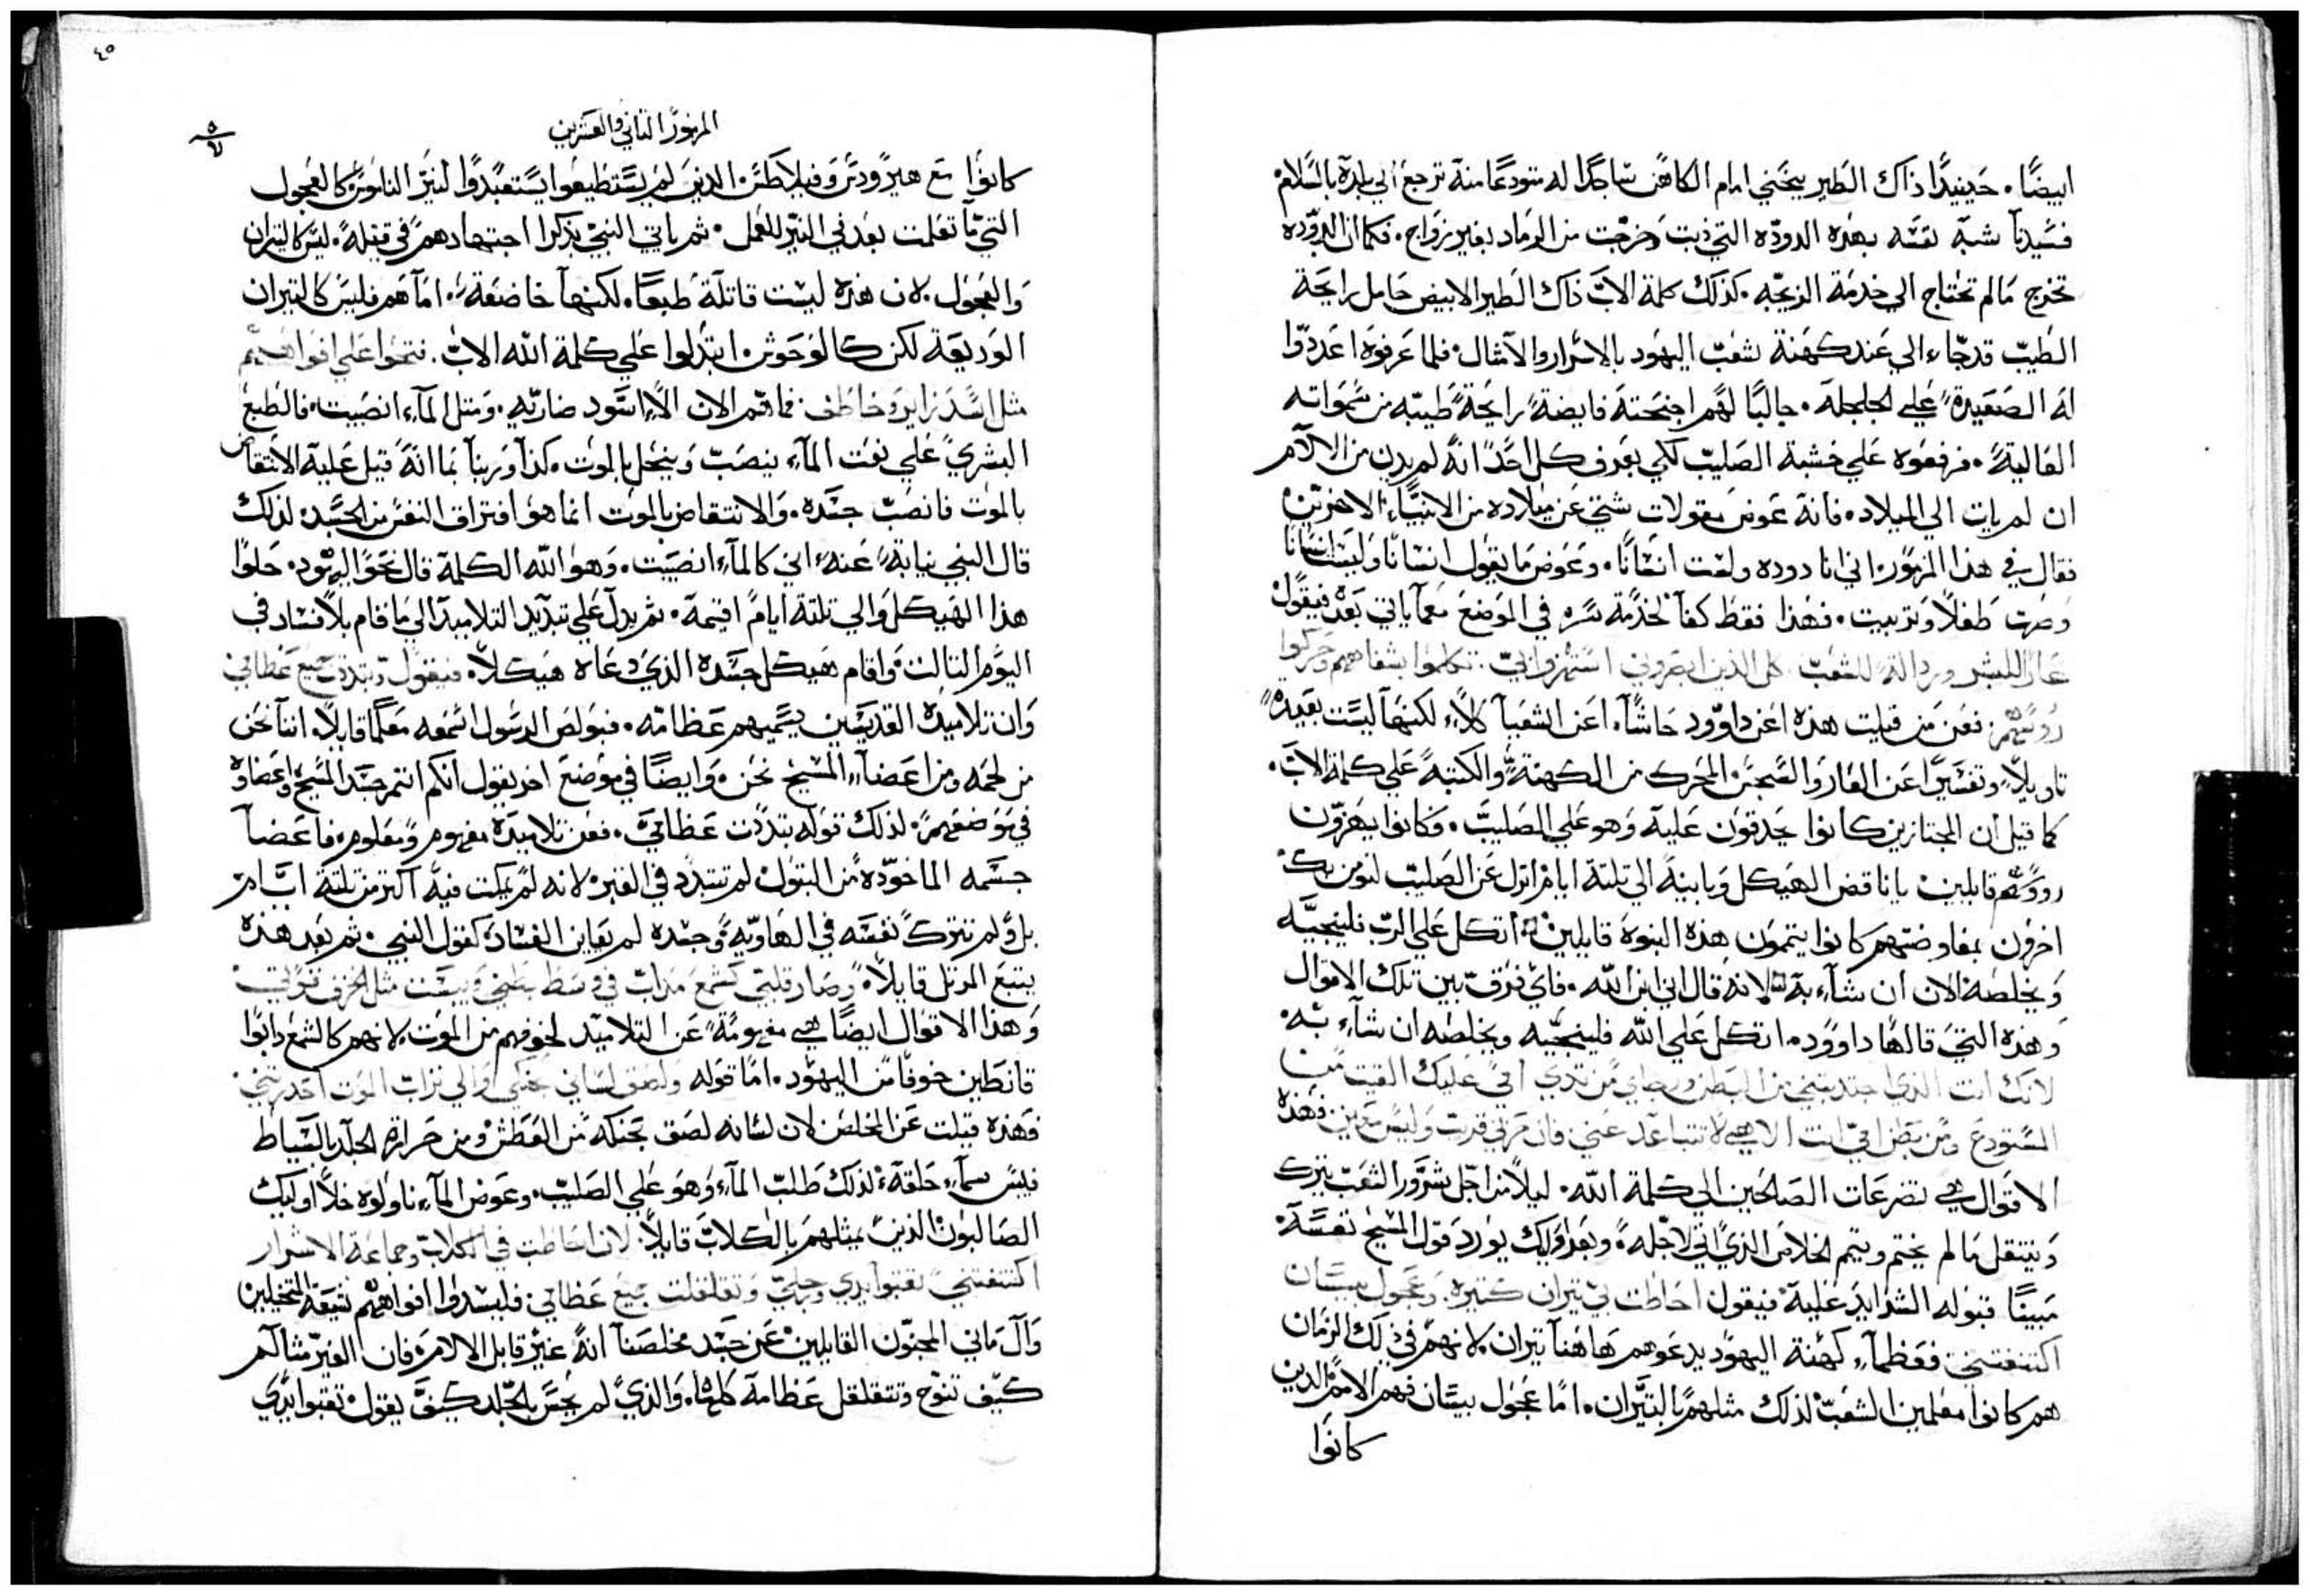 ايضًا. حينيدًا ذاك الطير ينحني امام الكاهن ساجدًا له متودعًا منه ترجع الي بلدة بالسلام
فسيدنا شبه نفسه بهذه الدوده التي ذبت وخرجت من الرماد بغير زواج. فكما ان الدوده
تخرج مالم تحتاج الي خدمة الزيجه. كذلك كلمة الاب ذاك الطير الابيض حامل رايحة
الطيب قد جاء الي عند كهنة شعب اليهود بالاسرار والامثال. فلما عرفوه اعدوا
له الصغيرة علي الجلجلة. جالبًا لهم اجنحته فايضة رايحة طيبه من سمواته
العالية. فرفعوه علي خشبة الصليب لكي يعرف كل احد انه لم يدن من الالام
ان لم يات الي الميلاد. فانه عوض مقولات شتي عن ميلاده من الانبياء الاخرين
فقال في هذا المزمور اني انا دوده ولست انسانًا. وعوض ما يقول انسانًا وليست انسانًا
وصرت طفلًا وتربيت. فهذا فقط كفا لخدمة سره في الموضع معما ياتي بعد فيقول
عار للبشر ورداله للشعب. كل الذين ابصروني استهزوا بي. تكلموا بشفاههم وحركوا
روسهم. فعن من قيلت هذه اعن داوود حاشا. اعن الشعيا كلا. لكنها ليست بعيدة
تاويلًا وتفسيرًا عن العار والسجس المحرك من الكهنة والكتبة علي كلمة الاب.
كما قيل ان المجتازين كانوا يجدفون عليه وهو علي الصليب. وكانوا يهزون
رووسهم قايلين يا ناقض الهيكل ويا بينه الي تلتة ايام انزل عن الصليب لنومن بك
اخرون بمفاوضتهم كانوا يتممون هذه النبوة قايلين اتكل علي الرب فلينجيه
ويخلصه الان ان شاء به لانه قال اني ابن الله. فاي فرق بين تلك الاقوال
وهذه التي قالها داوود. اتكل علي الله فلينجيه ويخلصه ان شاء به.
لانك انت الذي اجتدبتني من البطن ورجاي من تدي امي عليك القيت من
المستودع ومن بطن امي انت الاهي لا تتباعد عني فان حزني قريب وليس معين فهذه
الاقوال هي تضرعات الصالحين الي كلمة الله. ليلا من اجل شرور الشعب يترك
وينتقل مالم يختم ويتم الخلاص الذي اتي لاجله. وبعد ذلك يورد قول المسيح نفسه
مبينًا قبوله الشدايد عليه فيقول احاطت بي تيران كتيره. وعجول بيسان
اكتنفتني فعظماء كهنة اليهود يدعوهم هاهنا تيران. لانهم في ذلك الزمان
هم كانوا معلمين الشعب لذلك مثلهم بالتيران. اما عجول بيسان فهم الامم الدين
كانوا
٤٥
المزمور التاني والعشرين
كانوا مع هيرودس وفيلاطس. الدين لم يستطيعوا يستعبدوا لنير الناموس كالعجول
التي ما تعلمت بعد في النير للعمل. تم ياتي النبي يذكرا اجتهادهم في قتله. ليس كالتيران
والعجول. لان هذه ليست قاتلة طبعًا. لكنها خاضعة. اما هم فليس كالتيران
الوديعة لكن كالوحوش. ابتدلوا علي كلمة الله الاب. فتحوا علي افواههم
مثل اسد زاير وخاطف. فما هم الان الا اسود ضاريه. ومتل الماء انصبيت. فالطبع
البشري علي نعت الماء ينصب وينحل بالموت. كذا وربنا بما انه قبل علية الانتقاض
بالموت فانصب جسده. والانتقاض بالموت انما هو افتراق النفس من الجسد. لذلك
قال النبي نيابة عنه اني كالماء انصبيت. وهو الله الكلمة قال نحو اليهود. حلوا
هذا الهيكل والي تلتة ايام اقيمه. تم يدل علي تبديد التلاميد الي ما قام بلا فساد في
اليوم التالت واقام هيكل جسده الذي دعاه هيكلًا. فيقول وتبددت جميع عظامي
وان تلاميده القديسين يسميهم عظامه. فبولص الرسول اسمعه معلمًا قايلًا. اننا نحن
من لحمه ومن اعضاء المسيح نحن. وايضًا في موضع اخر يقول انكم انتم جسد المسيح واعضاوه
في موضعهم. لذلك قوله تبددت عظامي. فعن تلاميده مفهوم ومعلوم. فاعضا
جسمه الماخوده من البتول لم تتبدد في القبر. لانه لم يمكت فيه اكتر من تلتة ايام
بل ولم تترك نفسه في الهاويه وجسده لم يعاين الفساد كقول النبي. تم بعد هذه
يتبع المرتل قايلًا. وصار قلبي كشمع مداب في وسط بطني ويبست مثل الخزف قوتي.
وهذا الاقوال ايضًا هي مفهومة عن التلاميد لخوفهم من الموت. لانهم كالشمع دابوا
قانطين خوفًا من اليهود. اما قوله ولصق لساني بحنكي والي تراب الموت احدرتني.
فهذه قيلت عن المخلص لان لسانه لصق بحنكه من العطش ومن حرارة الجلد بالسياط
فيبس سماء حلقه. لذلك طلب الماء وهو علي الصليب. وعوض الماء ناولوه خلًا اوليك
الصالبون الذين يمثلهم بالكلاب قايلًا. لان احاطت بي كلاب وجماعة الاشرار
اكتنفتني. تقبوا يدي ورجلي وتقلقلت جميع عظامي. فليسدوا افواههم شيعة المتخيلين
وال ماني المجنون القايلين عن جسد مخلصنا انه غير قابل الالام. فان الغير متالم
كيف تنوح وتتقلقل عظامه كلها. والذي لم يحس بالجلد كيف يقول تقبوا يدي